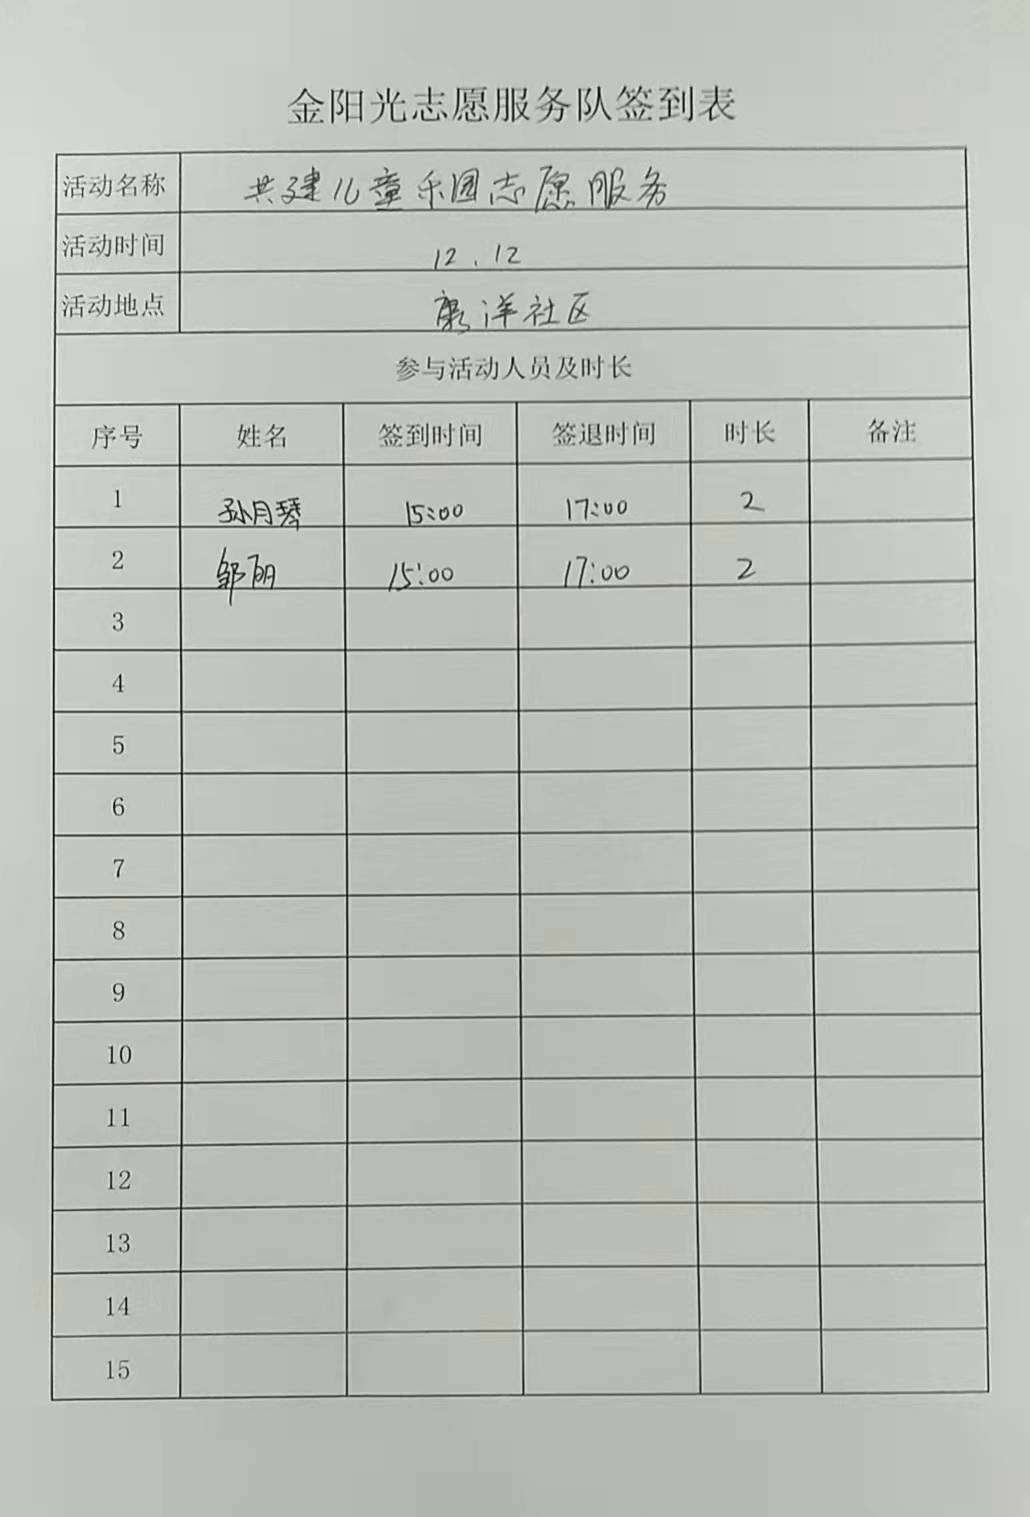 金阳光志愿服务队签到表
活动名称 共建儿童乐园志愿服务
活动时间 12.12
活动地点 洋社区
参与活动人员及时长
序号 姓名 签到时间 签退时间 时长 备注
1 孙月琴 15:00 17:00 2
2 邹丽 15:00 17:00 2
3
4
5
6
7
8
9
10
11
12
13
14
15